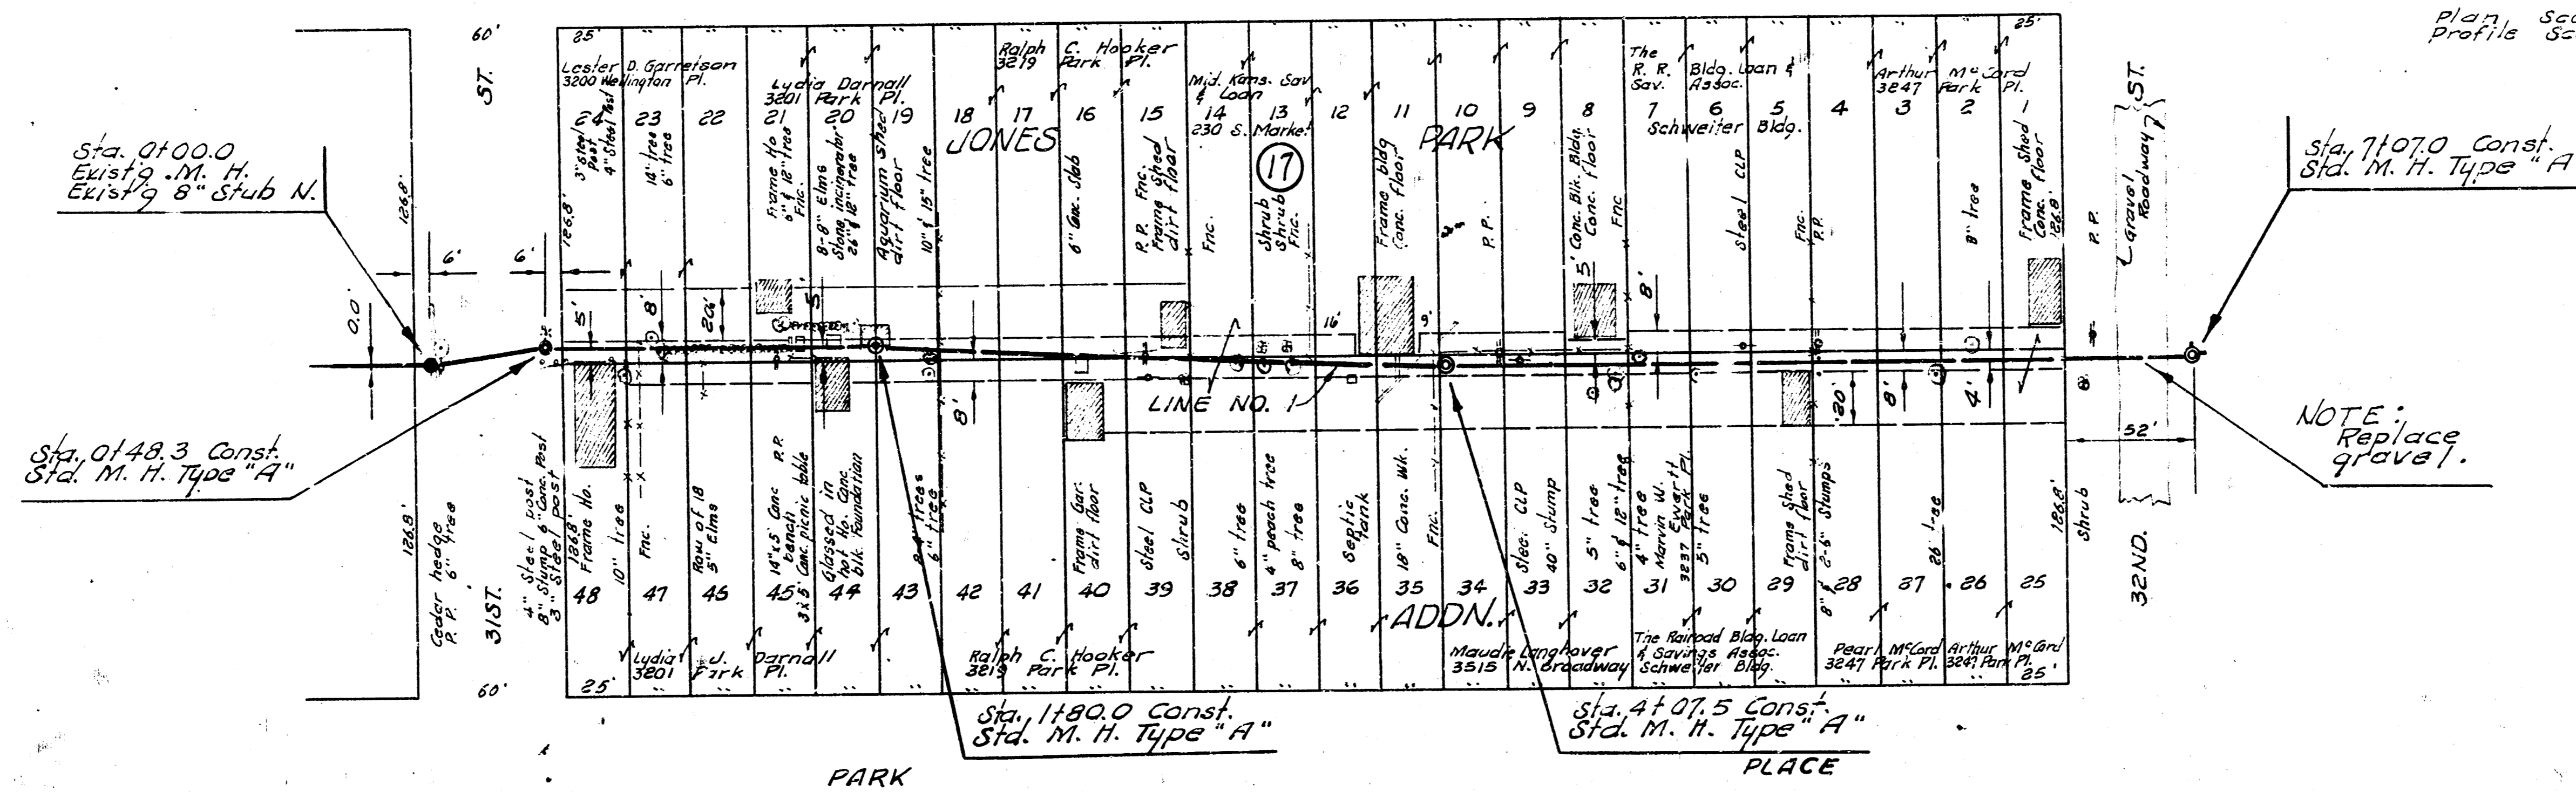 Plan
Profile
Sta. 0+00.0
Exist'g. M. H.
Exist'g 8" Stub N.
Sta. 0+48.3 Const.
Std. M. H. Type "A"
0.0'
126.8'
126.8'
6'
6'
60'
ST.
31ST.
60'
Cedar hedge
P. P. 6" tree
4" Steel post
8" Stump 6" Conc. Post
3" Steel post
25'
Lester D. Garretson
3200 Wellington Pl.
Lydia Darnall
3201 Park Pl.
Ralph C. Hooker
3219 Park Pl.
Mid. Kans. Sav
& Loan
230 S. Market
The
R. R. Bldg. Loan &
Sav. Assoc.
Schweiter Bldg.
Arthur McCord
3247 Park Pl.
25'
24 23 22 21 20 19 18 17 16 15 14 13 12 11 10 9 8 7 6 5 4 3 2 1
JONES
PARK
17
3" Steel
Post
4" Steel Post
126.8'
14" tree
6" tree
Frame Ho
6" & 12" tree
Fnc.
8-8" Elms
Stone incinerator
26" & 12" tree
Aquarium shed
dirt floor
10" & 15" tree
6" Conc. Slab
P. P. Fnc.
Frame Shed
dirt floor
Fnc.
Shrub
Shrub
Fnc.
Frame bldg
Conc. floor
P. P.
Conc. Blk. Bldg.
Conc. floor
Fnc
Steel CLP
Fnc.
P.P.
8" tree
Frame Shed
Conc. floor
126.8'
P. P.
Gravel
Roadway
ST.
Sta. 7+07.0 Const.
Std. M. H. Type "A"
5'
8'
20'
5'
8'
16'
9'
5'
8'
20'
8'
4'
LINE NO. 1
52'
NOTE:
Replace
gravel.
126.8'
Frame Ho.
10" tree
Fnc.
Row of 18
5" Elms
14"x5' Conc P.P.
bench
3'x5' Conc. picnic table
Glassed in
hot Ho. Conc
blk. foundation
6" tree
Frame Gar.
dirt floor
Steel CLP
Shrub
6" tree
4" peach tree
8" tree
Septic
tank
18" Conc. Wk.
Fnc.
CLP
40" Stump
5" tree
6" & 12" tree
4" tree
Marvin W.
Ewertt
3237 Park Pl.
5" tree
Frame Shed
dirt floor
8" & 2-6" Stumps
126.8'
Shrub
32ND.
48 47 46 45 44 43 42 41 40 39 38 37 36 35 34 33 32 31 30 29 28 27 26 25
ADDN.
Lydia J. Darnall
3201 Park Pl.
Ralph C. Hooker
3219 Park Pl.
Maudie Langhover
3515 N. Broadway
The Railroad Bldg. Loan
& Savings Assoc.
Schweiter Bldg.
Pearl McCord
3247 Park Pl.
Arthur McCord
3247 Park Pl.
25'
25'
Sta. 1+80.0 Const.
Std. M. H. Type "A"
Sta. 4+07.5 Const.
Std. M. H. Type "A"
PARK
PLACE